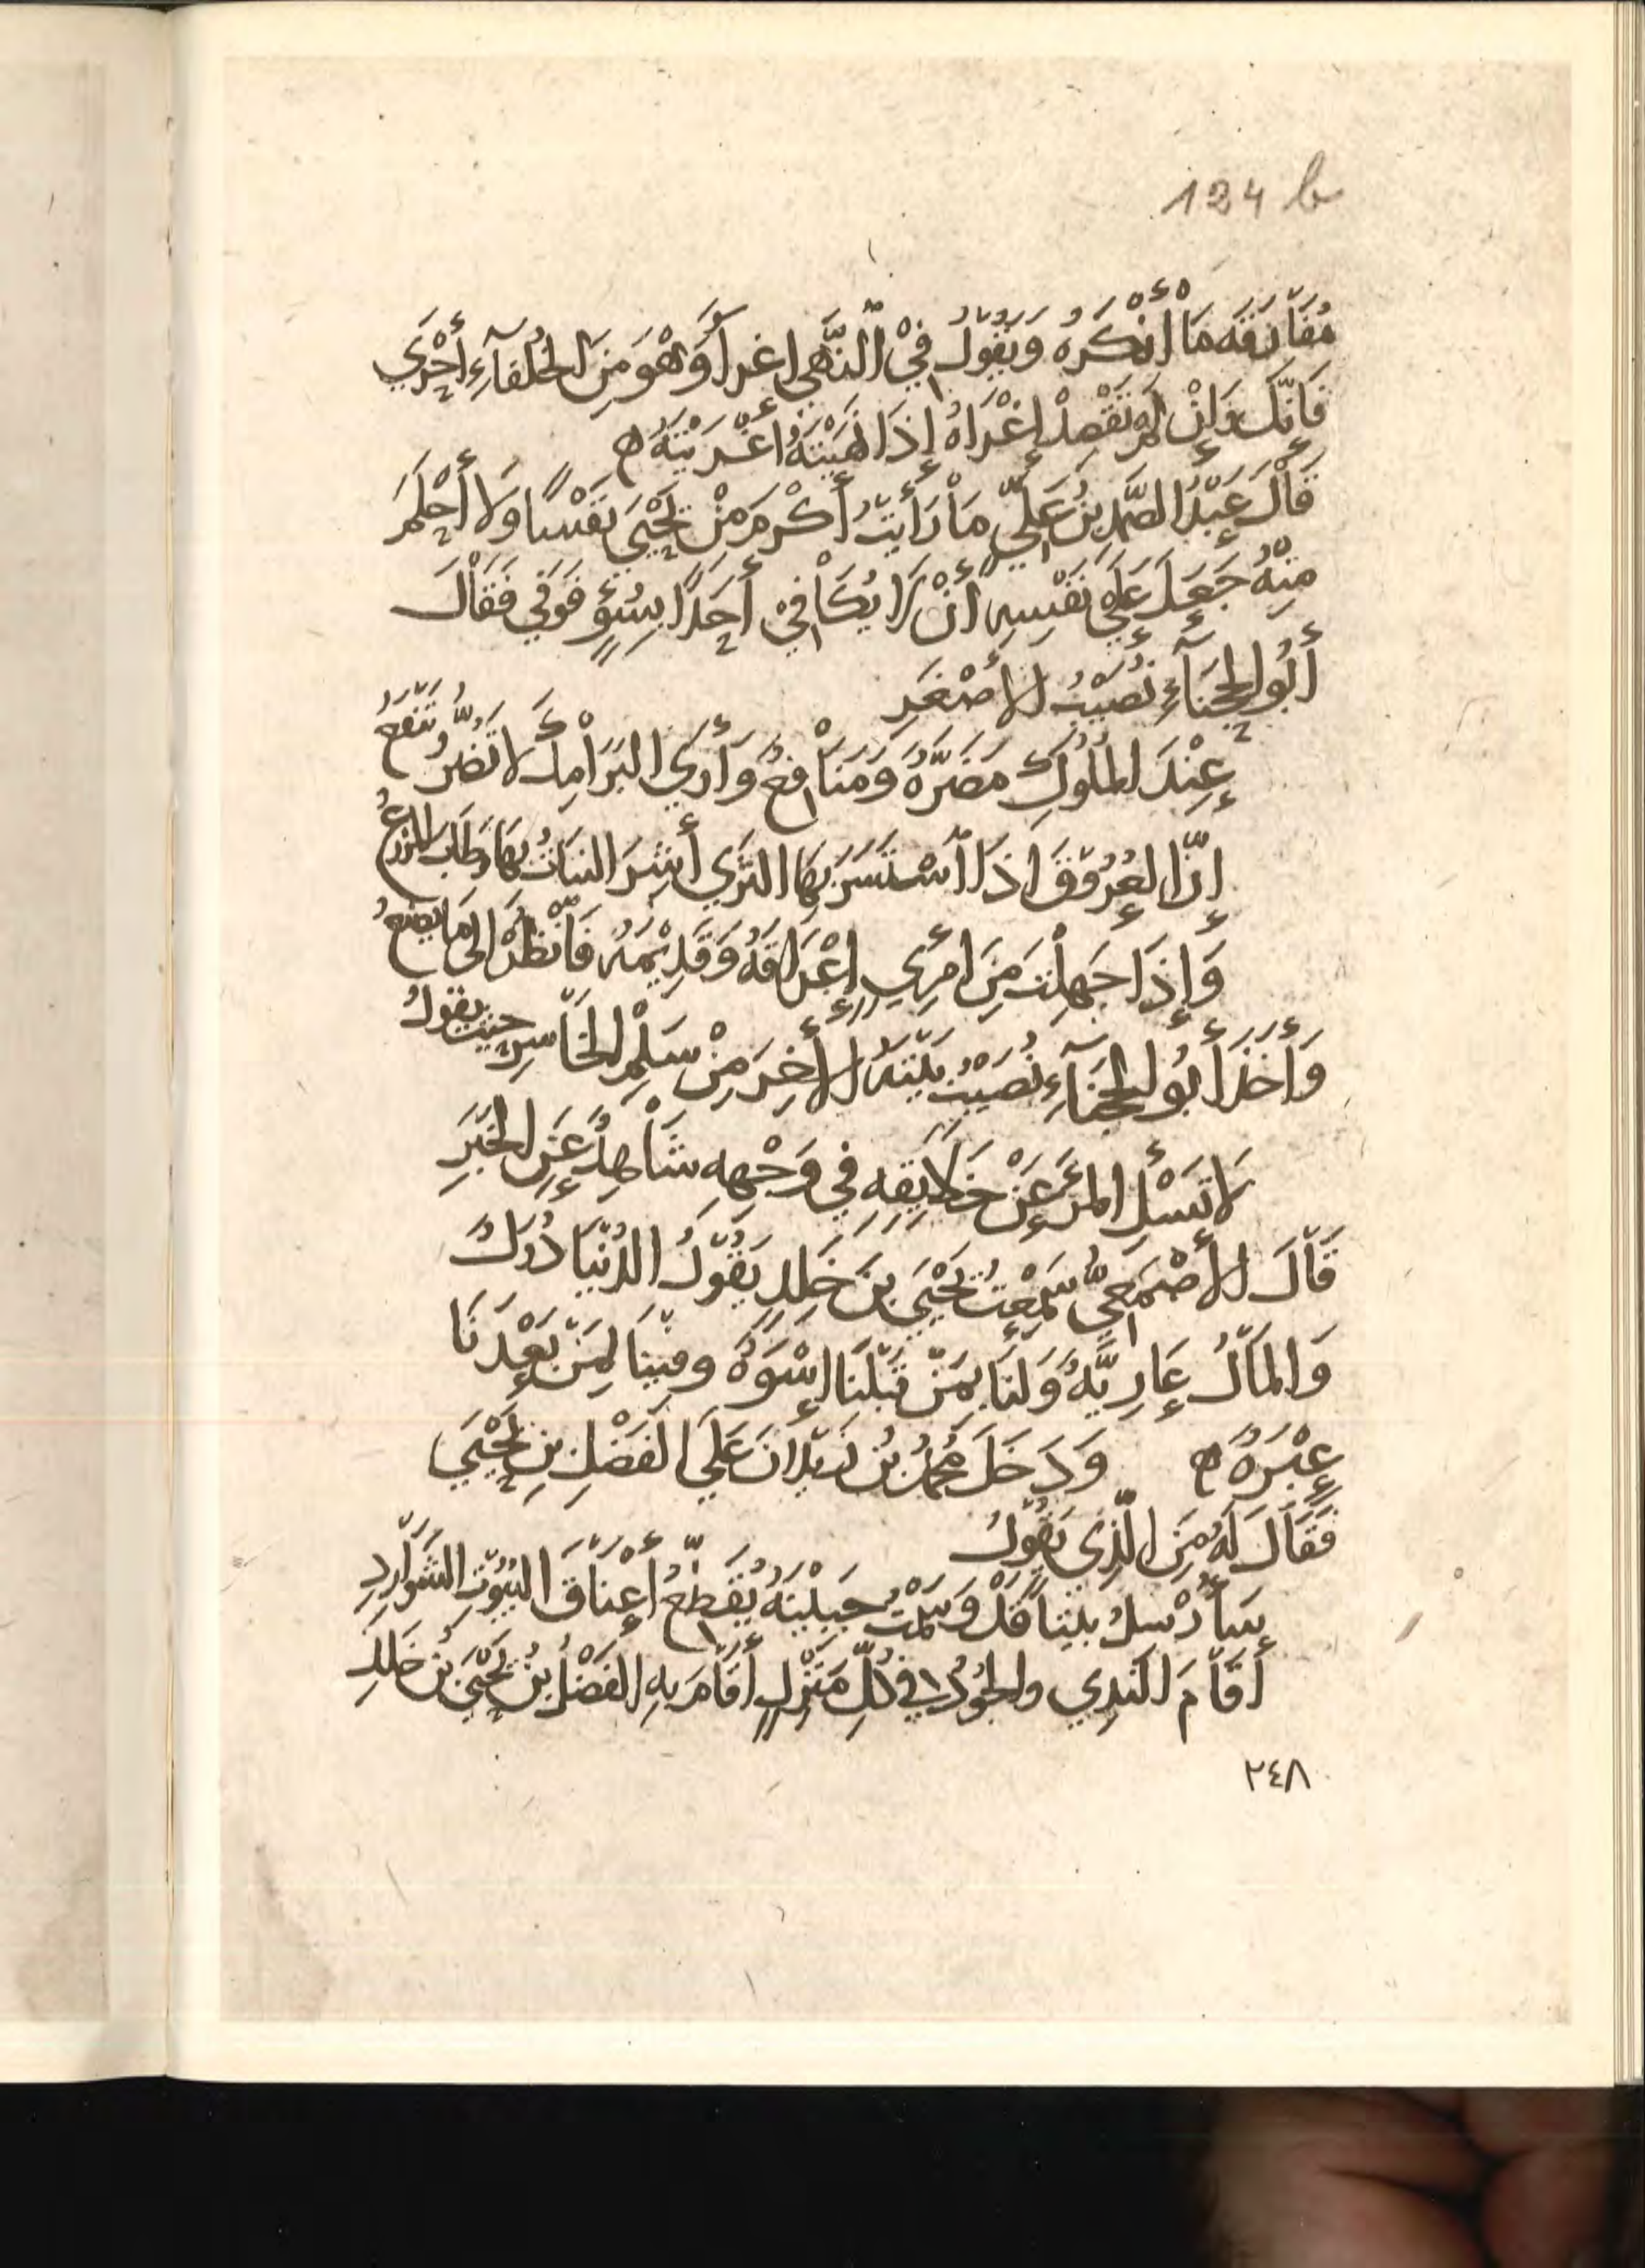 124 b
مُفَارَقَه مَا أَنْكَرَهُ وَيَقُولُ فِيْ الْنَّهي اغرآ وَهْوَ مِنَ الخُلَفآءِ أَحْرَي
فَإِنَّكَ وَإِنْ لَمْ تَقْصِدْ إِغْرَاهُ إِذَا نَهَيْتَهُ أَغْرَيْتَهُ ه
قَالَ عَبْدُ الصَّمَدِ بنُ عَلِيٍّ مَا رَأَيتُ أَكْرَمَ مِنْ يَحْيَيَ نَفْسًا وَلَا أَحْلَمَ
مِنْهُ جَعَلَ عَلَي نَفْسِهِ أَنْ لَا يُكَافِيْ أَحَدًا بِسُؤٍ فَوَفي فَقَالَ
أَبُو الحَجنَآءِ نُصَيْبُ الأَصْغَرِ
عِنْدَ المُلُوكِ مَضَرَّةٌ وَمَنَافِعٌ وَأَرَي البَرَامِكَ لا تَضُرُّ وَتَنفَعُ
إِنَّ العُرُوقَ اذَا اسْتَسَرَّ بِهَا الثَّرَي أَشِرَ النبَاتُ بِهَا وَطَابَ المَزْرَعُ
وَإِذَا جَهِلْتَ مِنَ امْرِيٍ إِعْرَاقَهُ وَقَدِيْمَهُ فَانْظُرْ الَى مَا يَصنَعُ
وَأَخَذَ أَبُو الحَجنَآءِ نُصَيْبُ بَيْتَهُ الأَخِرَ مِنْ سَلْمِ الخَاسِرِ حيث يقولُ
لَا تَسْئَلِ المَرْءَ عَنْ خَلَايِقِهِ فِي وَجْهِهِ شَاهِدٌ عَنِ الخَبَرِ
قَالَ الأَصْمَعِيُّ سَمِعْتُ يَحْيَيَ بنَ خَلِدٍ يَقُوْلُ الدُنْيَا دُوَلٌ
وَالمَالُ عَارِيَّةٌ وَلَنَا بِمَنْ قَبْلَنَا إِسْوَةٌ وفِيْنَا لِمَنْ بَعْدَنَا
عِبْرَةٌ ه وَدَخَلَ مُحَمَّدُ بُن زَيْدَانَ عَلَي الفَضْلِ بنِ يَحْيَيَ
فَقَالَ لَهُ مَنِ الَّذِي يَقُوْلُ
سَأُرْسِلُ بَيْتاً قَدْ وَسَمْتُ جَبِيْنَهُ يُقَطِّعُ أَعْنَاقَ البُيُوْتِ الشَوَارِدِ
أَقَامَ النَدِي والجُوْدُ في كُلِّ مَنْزِلٍ أَقَامَ بِهِ الفَضْلُ بنُ يَحْيَيَ بن خَلِدِ
٢٤٨